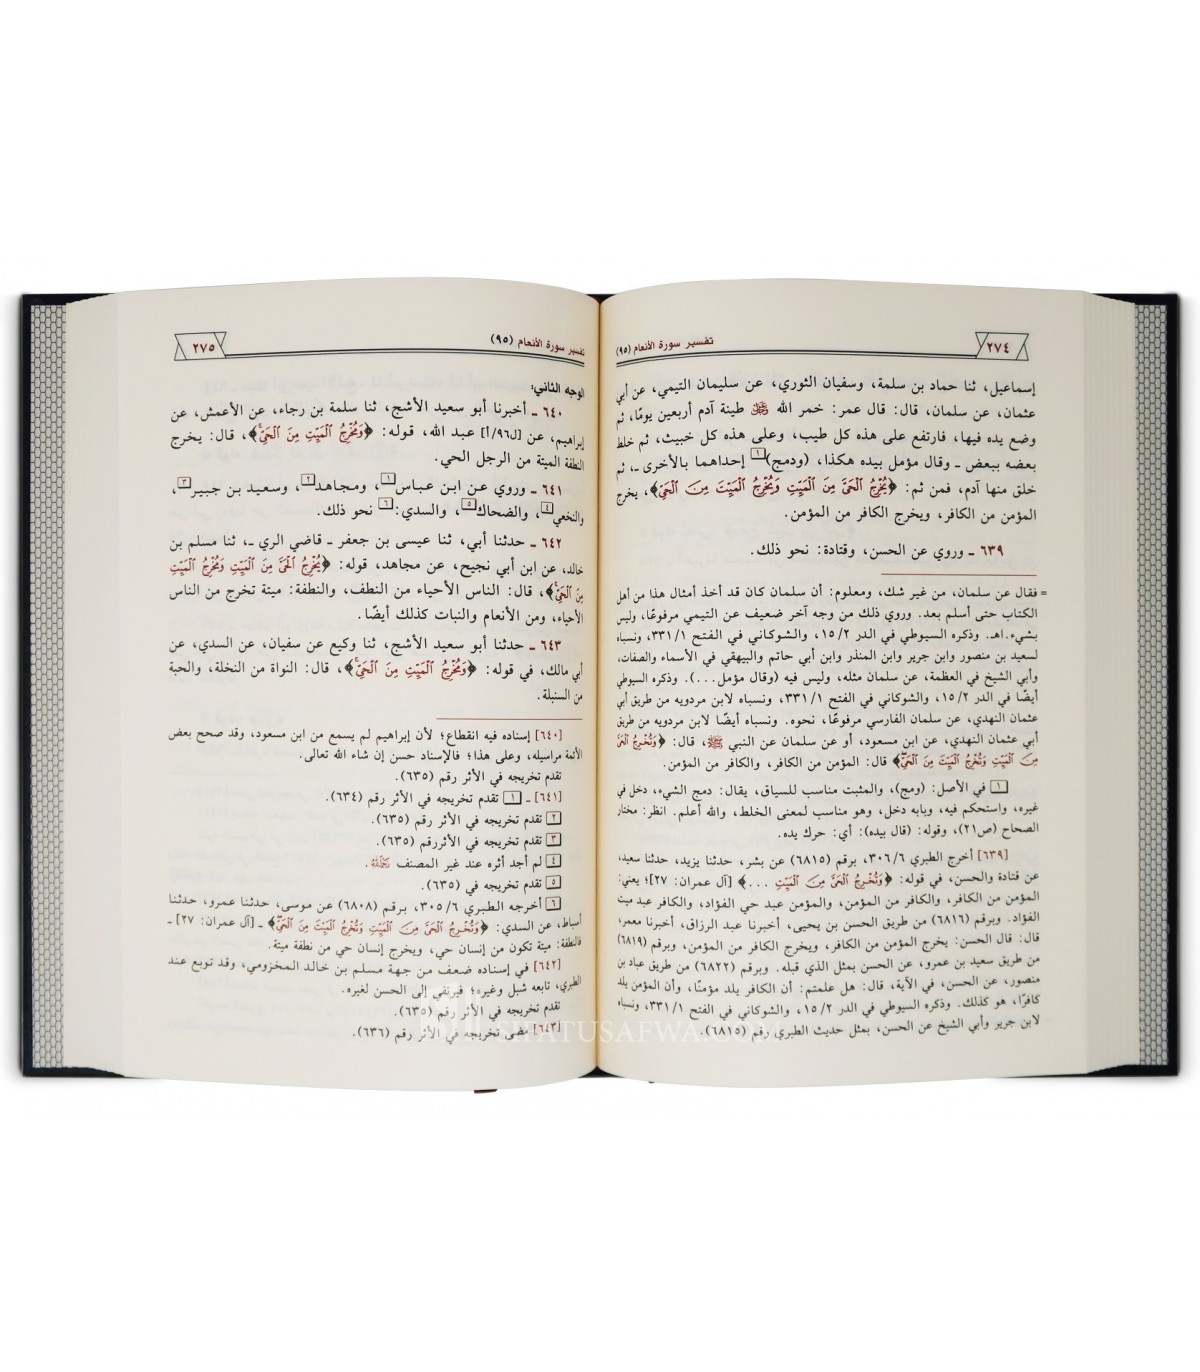 ٢٧٤
تفسير سورة الأنعام (٩٥)
إسماعيل، ثنا حماد بن سلمة، وسفيان الثوري، عن سليمان التيمي، عن أبي
عثمان، عن سلمان، قال: قال عمر: خمر الله ﷻ طينة آدم أربعين يومًا، ثم
وضع يده فيها، فارتفع على هذه كل طيب، وعلى هذه كل خبيث، ثم خلط
بعضه ببعض ـ وقال مؤمل بيده هكذا، (ودمج)[١] إحداهما بالأخرى ـ، ثم
خلق منها آدم، فمن ثم: ﴿يُخْرِجُ الْحَيَّ مِنَ الْمَيِّتِ وَيُخْرِجُ الْمَيِّتَ مِنَ الْحَيِّ﴾، يخرج
المؤمن من الكافر، ويخرج الكافر من المؤمن.
٦٣٩ ـ وروي عن الحسن، وقتادة: نحو ذلك.
= فقال عن سلمان، من غير شك، ومعلوم: أن سلمان كان قد أخذ أمثال هذا من أهل
الكتاب حتى أسلم بعد. وروي ذلك من وجه آخر ضعيف عن التيمي مرفوعًا، وليس
بشيء.اهـ. وذكره السيوطي في الدر ١٥/٢، والشوكاني في الفتح ٣٣١/١، ونسباه
لسعيد بن منصور وابن جرير وابن المنذر وابن أبي حاتم والبيهقي في الأسماء والصفات،
وأبي الشيخ في العظمة، عن سلمان مثله، وليس فيه (وقال مؤمل...). وذكره السيوطي
أيضًا في الدر ١٥/٢، والشوكاني في الفتح ٣٣١/١، ونسباه لابن مردويه من طريق أبي
عثمان النهدي، عن سلمان الفارسي مرفوعًا، نحوه. ونسباه أيضًا لابن مردويه من طريق
أبي عثمان النهدي، عن ابن مسعود، أو عن سلمان عن النبي ﷺ، قال: ﴿وَتُخْرِجُ الْحَيَّ
مِنَ الْمَيِّتِ وَتُخْرِجُ الْمَيِّتَ مِنَ الْحَيِّ﴾ قال: المؤمن من الكافر، والكافر من المؤمن.
[١] في الأصل: (ومج)، والمثبت مناسب للسياق، يقال: دمج الشيء، دخل في
غيره، واستحكم فيه، وبابه دخل، وهو مناسب لمعنى الخلط، والله أعلم. انظر: مختار
الصحاح (ص٢١)، وقوله: (قال بيده): أي: حرك يده.
[٦٣٩] أخرج الطبري ٣٠٦/٦، برقم (٦٨١٥) عن بشر، حدثنا يزيد، حدثنا سعيد،
عن قتادة والحسن، في قوله: ﴿وَتُخْرِجُ الْحَيَّ مِنَ الْمَيِّتِ ...﴾ [آل عمران: ٢٧]؛ يعني:
المؤمن من الكافر، والكافر من المؤمن، والمؤمن عبد حي الفؤاد، والكافر عبد ميت
الفؤاد. وبرقم (٦٨١٦) من طريق الحسن بن يحيى، أخبرنا عبد الرزاق، أخبرنا معمر،
قال: قال الحسن: يخرج المؤمن من الكافر، ويخرج الكافر من المؤمن، وبرقم (٦٨١٩)
من طريق سعيد بن عمرو، عن الحسن بمثل الذي قبله. وبرقم (٦٨٢٢) من طريق عباد بن
منصور، عن الحسن، في الآية، قال: هل علمتم: أن الكافر يلد مؤمنًا، وأن المؤمن يلد
كافرًا، هو كذلك. وذكره السيوطي في الدر ١٥/٢، والشوكاني في الفتح ٣٣١/١، ونسباه
لابن جرير وأبي الشيخ عن الحسن، بمثل حديث الطبري رقم (٦٨١٥).
تفسير سورة الأنعام (٩٥)
٢٧٥
الوجه الثاني:
٦٤٠ ـ أخبرنا أبو سعيد الأشج، ثنا سلمة بن رجاء، عن الأعمش، عن
إبراهيم، عن [ل٩٦/أ] عبد الله، قوله: ﴿وَمُخْرِجُ الْمَيِّتِ مِنَ الْحَيِّ﴾، قال: يخرج
النطفة الميتة من الرجل الحي.
٦٤١ ـ وروي عن ابن عباس[١]، ومجاهد[٢]، وسعيد بن جبير[٣]،
والنخعي[٤]، والضحاك[٥]، والسدي:[٦] نحو ذلك.
٦٤٢ ـ حدثنا أبي، ثنا عيسى بن جعفر ـ قاضي الري ـ، ثنا مسلم بن
خالد، عن ابن أبي نجيح، عن مجاهد، قوله: ﴿يُخْرِجُ الْحَيَّ مِنَ الْمَيِّتِ وَمُخْرِجُ الْمَيِّتِ
مِنَ الْحَيِّ﴾، قال: الناس الأحياء من النطف، والنطفة: ميتة تخرج من الناس
الأحياء، ومن الأنعام والنبات كذلك أيضًا.
٦٤٣ ـ حدثنا أبو سعيد الأشج، ثنا وكيع عن سفيان، عن السدي، عن
أبي مالك، في قوله: ﴿وَمُخْرِجُ الْمَيِّتِ مِنَ الْحَيِّ﴾، قال: النواة من النخلة، والحبة
من السنبلة.
[٦٤٠] إسناده فيه انقطاع؛ لأن إبراهيم لم يسمع من ابن مسعود، وقد صحح بعض
الأئمة مراسيله، وعلى هذا؛ فالإسناد حسن إن شاء الله تعالى.
تقدم تخريجه في الأثر رقم (٦٣٥).
[٦٤١] ـ [١] تقدم تخريجه في الأثر رقم (٦٣٤).
[٢] تقدم تخريجه في الأثر رقم (٦٣٥).
[٣] تقدم تخريجه في الأثررقم (٦٣٥).
[٤] لم أجد أثره عند غير المصنف رحمه الله.
[٥] تقدم تخريجه في (٦٣٥).
[٦] أخرجه الطبري ٣٠٥/٦، برقم (٦٨٠٨) عن موسى، حدثنا عمرو، حدثنا
أسباط، عن السدي: ﴿وَتُخْرِجُ الْحَيَّ مِنَ الْمَيِّتِ وَتُخْرِجُ الْمَيِّتَ مِنَ الْحَيِّ﴾ ـ [آل عمران: ٢٧] ـ
فالنطفة: ميتة تكون من إنسان حي، ويخرج إنسان حي من نطفة ميتة.
[٦٤٢] في إسناده ضعف من جهة مسلم بن خالد المخزومي، وقد توبع عند
الطبري، تابعه شبل وغيره؛ فيرتقي إلى الحسن لغيره.
تقدم تخريجه في الأثر رقم (٦٣٥).
[٦٤٣] مضى تخريجه في الأثر رقم (٦٣٦).
SIFATUSAFWA.COM